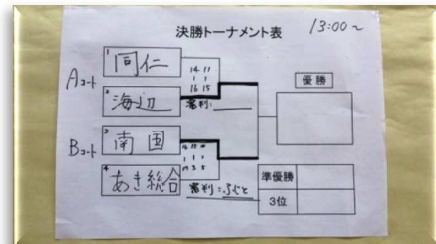 決勝トーナメント表
13:00~
Aコート
1 同仁
14 11
1 1
16 15
2 海辺
審判:
優勝
Bコート
3 南国
4 あき総合
審判:ふじと
準優勝
3位